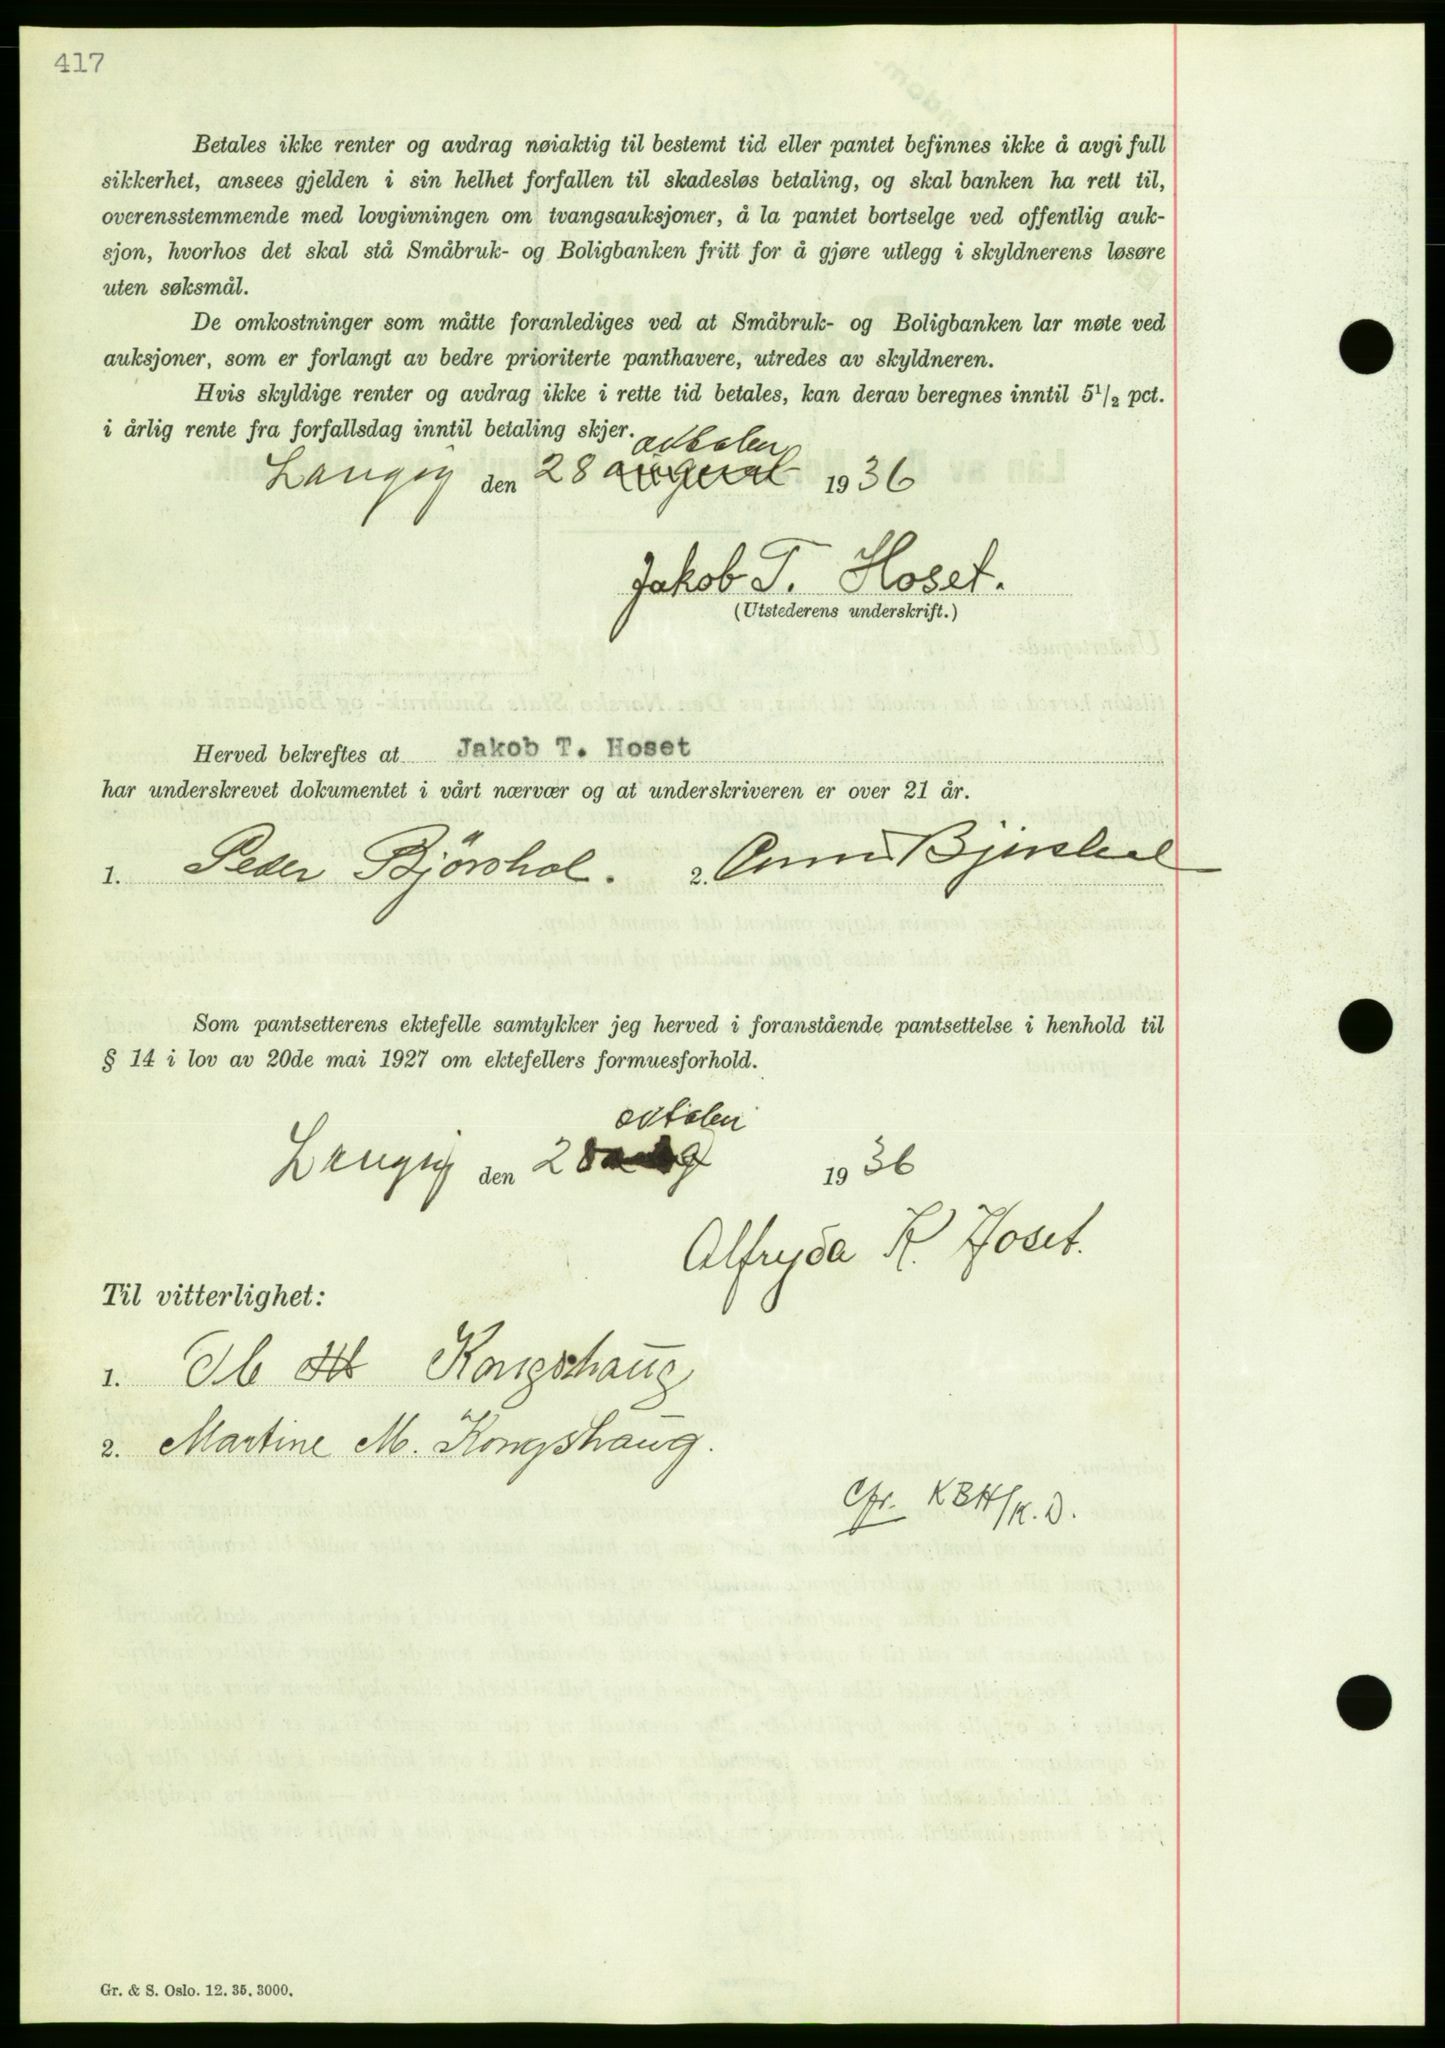 417
Betales ikke renter og avdrag nøiaktig til bestemt tid eller pantet befinnes ikke å avgi full
sikkerhet, ansees gjelden i sin helhet forfallen til skadesløs betaling, og skal banken ha rett til,
overensstemmende med lovgivningen om tvangsauksjoner, å la pantet bortselge ved offentlig auk-
sjon, hvorhos det skal stå Småbruk- og Boligbanken fritt for å gjøre utlegg i skyldnerens løsøre
uten søksmål.
De omkostninger som måtte foranlediges ved at Småbruk- og Boligbanken lar møte ved
auksjoner, som er forlangt av bedre prioriterte panthavere, utredes av skyldneren.
Hvis skyldige renter og avdrag ikke i rette tid betales, kan derav beregnes inntil 5 1/2 pct.
i årlig rente fra forfallsdag inntil betaling skjer.
oktober
den 28 august 1936
Jakob T. Hoset.
(Utstederens underskrift.)
Herved bekreftes at Jakob T. Hoset
har underskrevet dokumentet i vårt nærvær og at underskriveren er over 21 år.
1. Peder Bjørshol. 2. Bjørshol
Som pantsetterens ektefelle samtykker jeg herved i foranstående pantsettelse i henhold til
§ 14 i lov av 20de mai 1927 om ektefellers formuesforhold.
oktober
den 28 1936
Alfryda K. Hoset.
Til vitterlighet:
1. Kongshaug
2. Martine M. Kongshaug.
Cfr. KBH/K.D.
Gr. & S. Oslo. 12. 35. 3000.